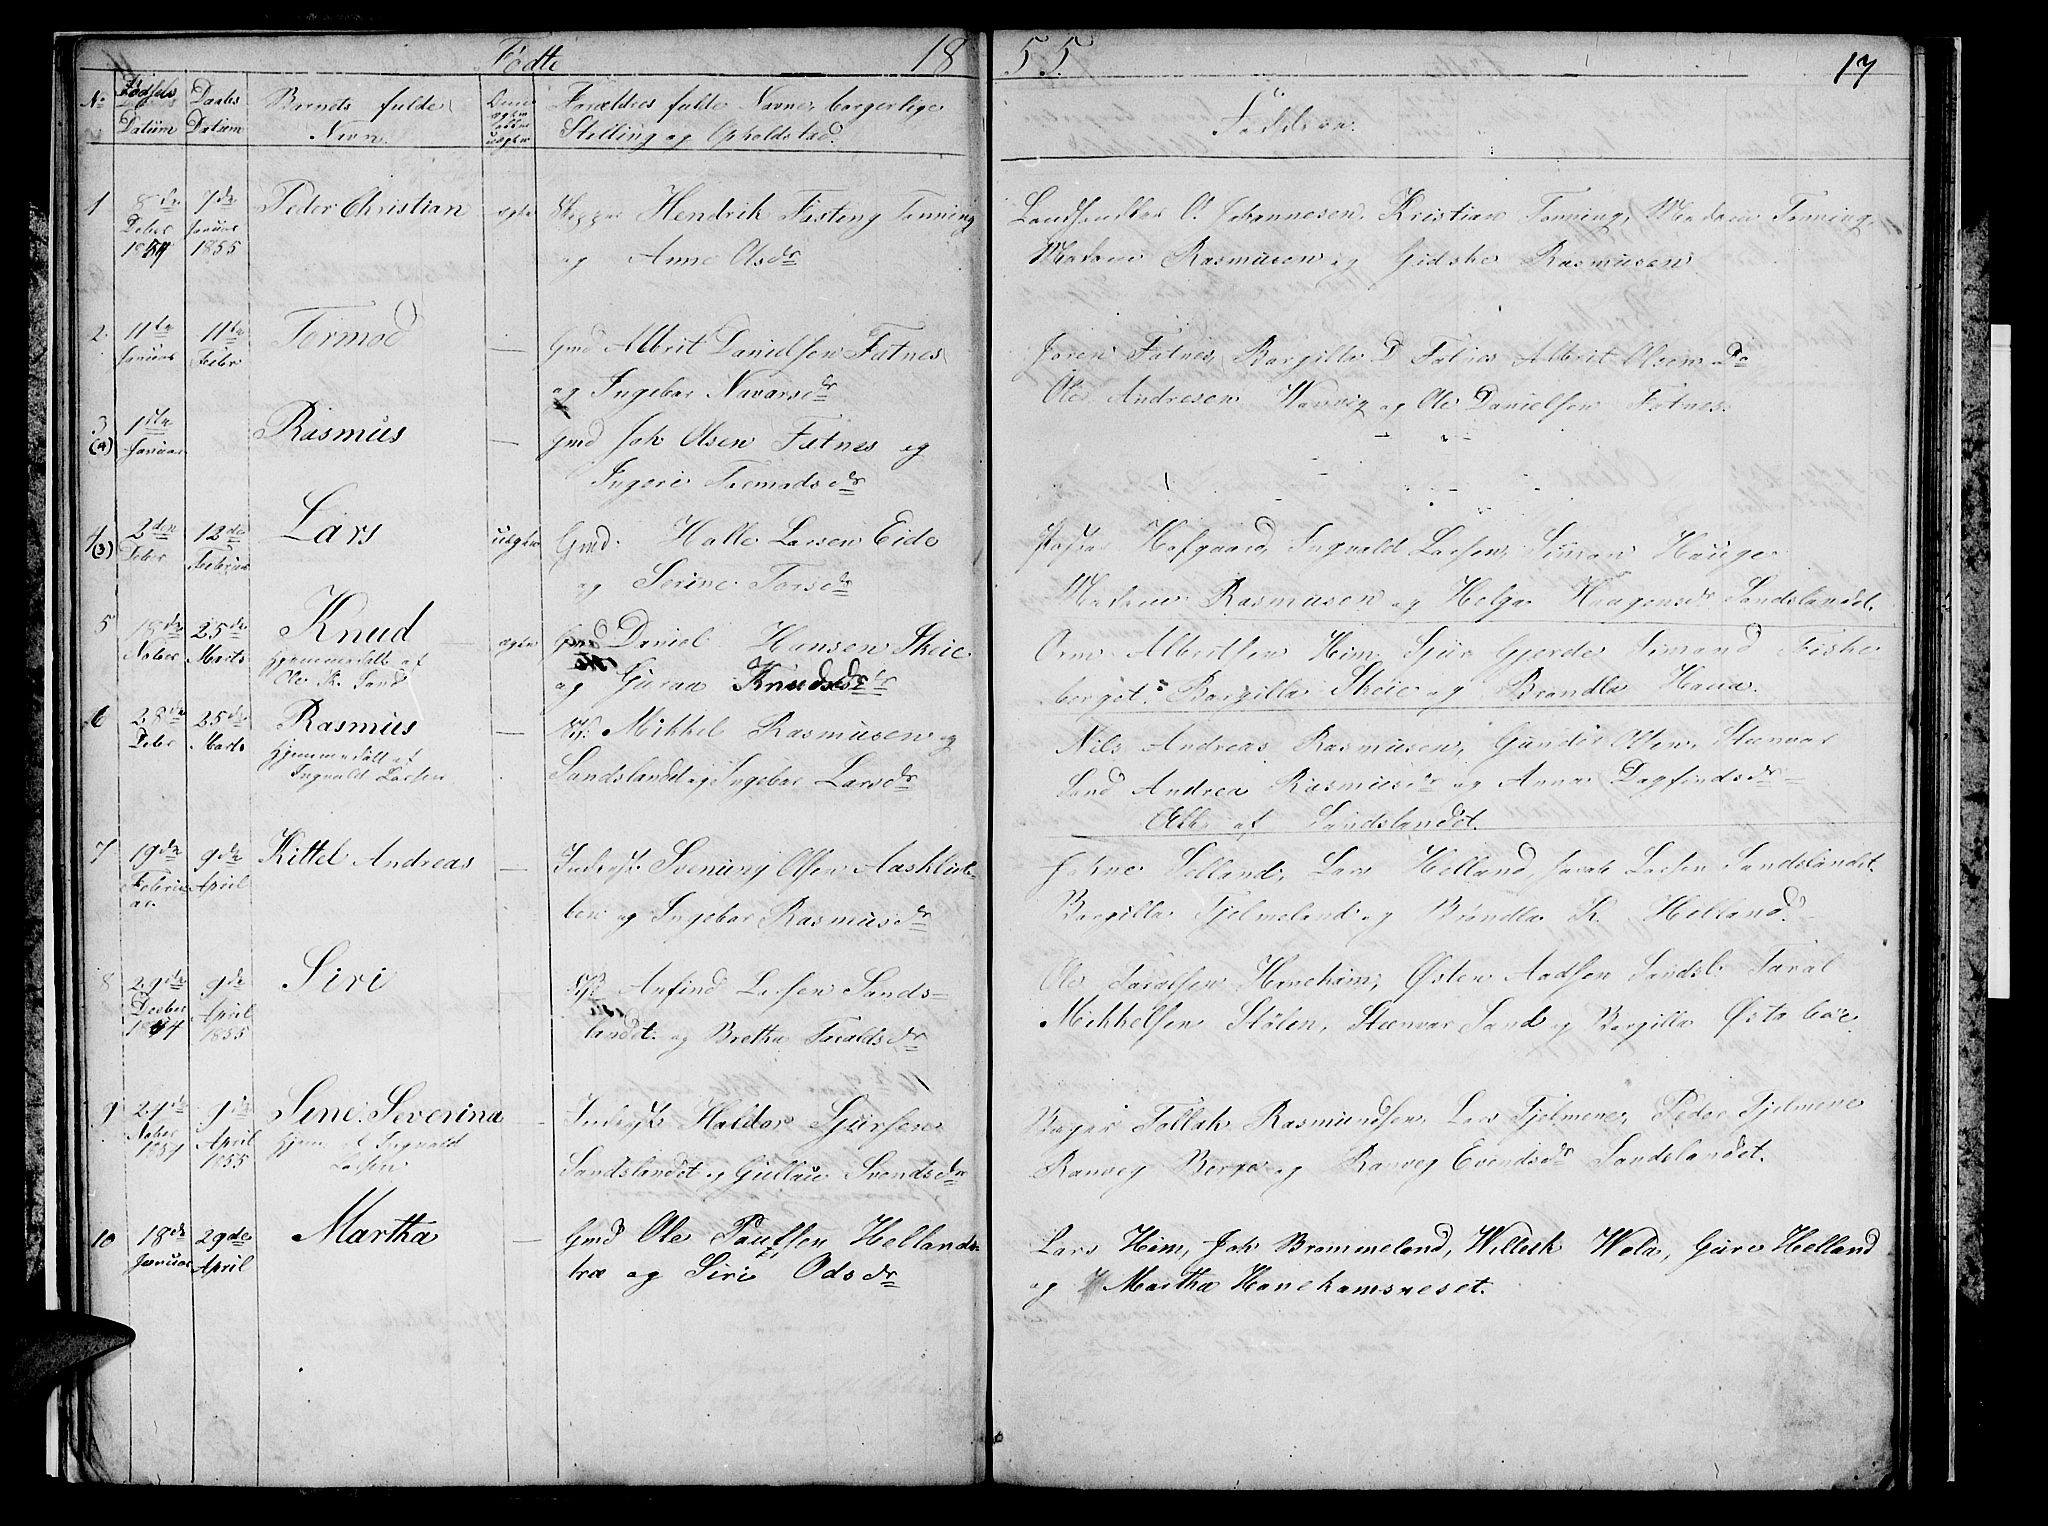 Fødte 18 55. 17
No Fødsels Datum Daabs Datum Barnets fulde Navn. Forældres fulde Navne, borgerlige Stilling og Opholdstad. Faddere.
1 8de Deber 1854 7de Januar 1855 Peder Christian ægte Hendrik Tonning
og Anne Olsdr
Johannesen, Kristian Tonning, Madam Tonning,
Madam Rasmusen og Gidske Rasmusen
2 11te Januar 11te Feber Tormod — Gmd Albrit Danielsen Fatnes
og Ingebor Navarsdr
Fatnes, Borgilla D Fatnes Albrit Olsen Do
Ole Andresen og Ole Danielsen Fatnes.
3 (4) 1ste Januar Rasmus — Gmd Jak Olsen Fatnes og
Ingeri Tormodsdr
4 (3) 2den Deber 12de Februar Lars uægte Gmd. Halle Larsen Eide
og Serine Torsdr
Hofgaard, Ingvald Larsen, Simon Hauge
Madam Rasmusen og Helga Haagensdr Sandslandet.
5 18de Nober 25de Marts Knud
hjemmedøbt af
Ole K. Sand
ægte Gmd Daniel Hansen Skeie
og Guraa Knudsdr
Orm Albertsen Him, Sjur Gjerde Simand Fiske
Borgilla Skeie og Brandla Hana.
6 28de Deber 25de Marts Rasmus
hjemmedøbt af
Ingvald Larsen
— Mikkel Rasmusen og
Sandslandet og Ingebor Larsdr
Nils Andreas Rasmusen, Gunder Olsen, Steenvor
Sand Andrea Rasmusdr og Anna Dagfindsdr
Alle af Sandslandet.
7 19de Februar 9de April Kittel Andreas — Inderst Svenung Olsen Aaskliv-
og Ingebor Rasmusdr
Selland, Lars Helland, Jacob Larsen Sandslandet.
Borgilla Tjelmeland og Brandla K. Helland.
8 29de Deeber 1854 9de April 1855 Siri Anfind Larsen Sands-
landet. og Bretha Taraldsdr
Ole Taralsen Hanekam, Østen Aadsen Sandsl. Taral
Mikkelsen Stølen, Steenvor Sand og Borgilla Østabøe.
9 29de Nober 1854 9de April 1855 Sine Severina
hjem af Ingvald
Larsen
Inderst Haldor Sjursen
Sandslandet og Gullau Svendsdr
Tollak Rasmundsen, Lars Tjelmene, Peder Tjelmene
Ranveg Berge og Ranveg Evendsdr Sandslandet.
10 18de Januar 29de April Martha — Gmd Ole Paulsen Hellands-
træ og Siri Odsdr
Lars Him, Jak Brommeland, Willesk Wola, Guro Helland
og Martha Hanekamsneset.